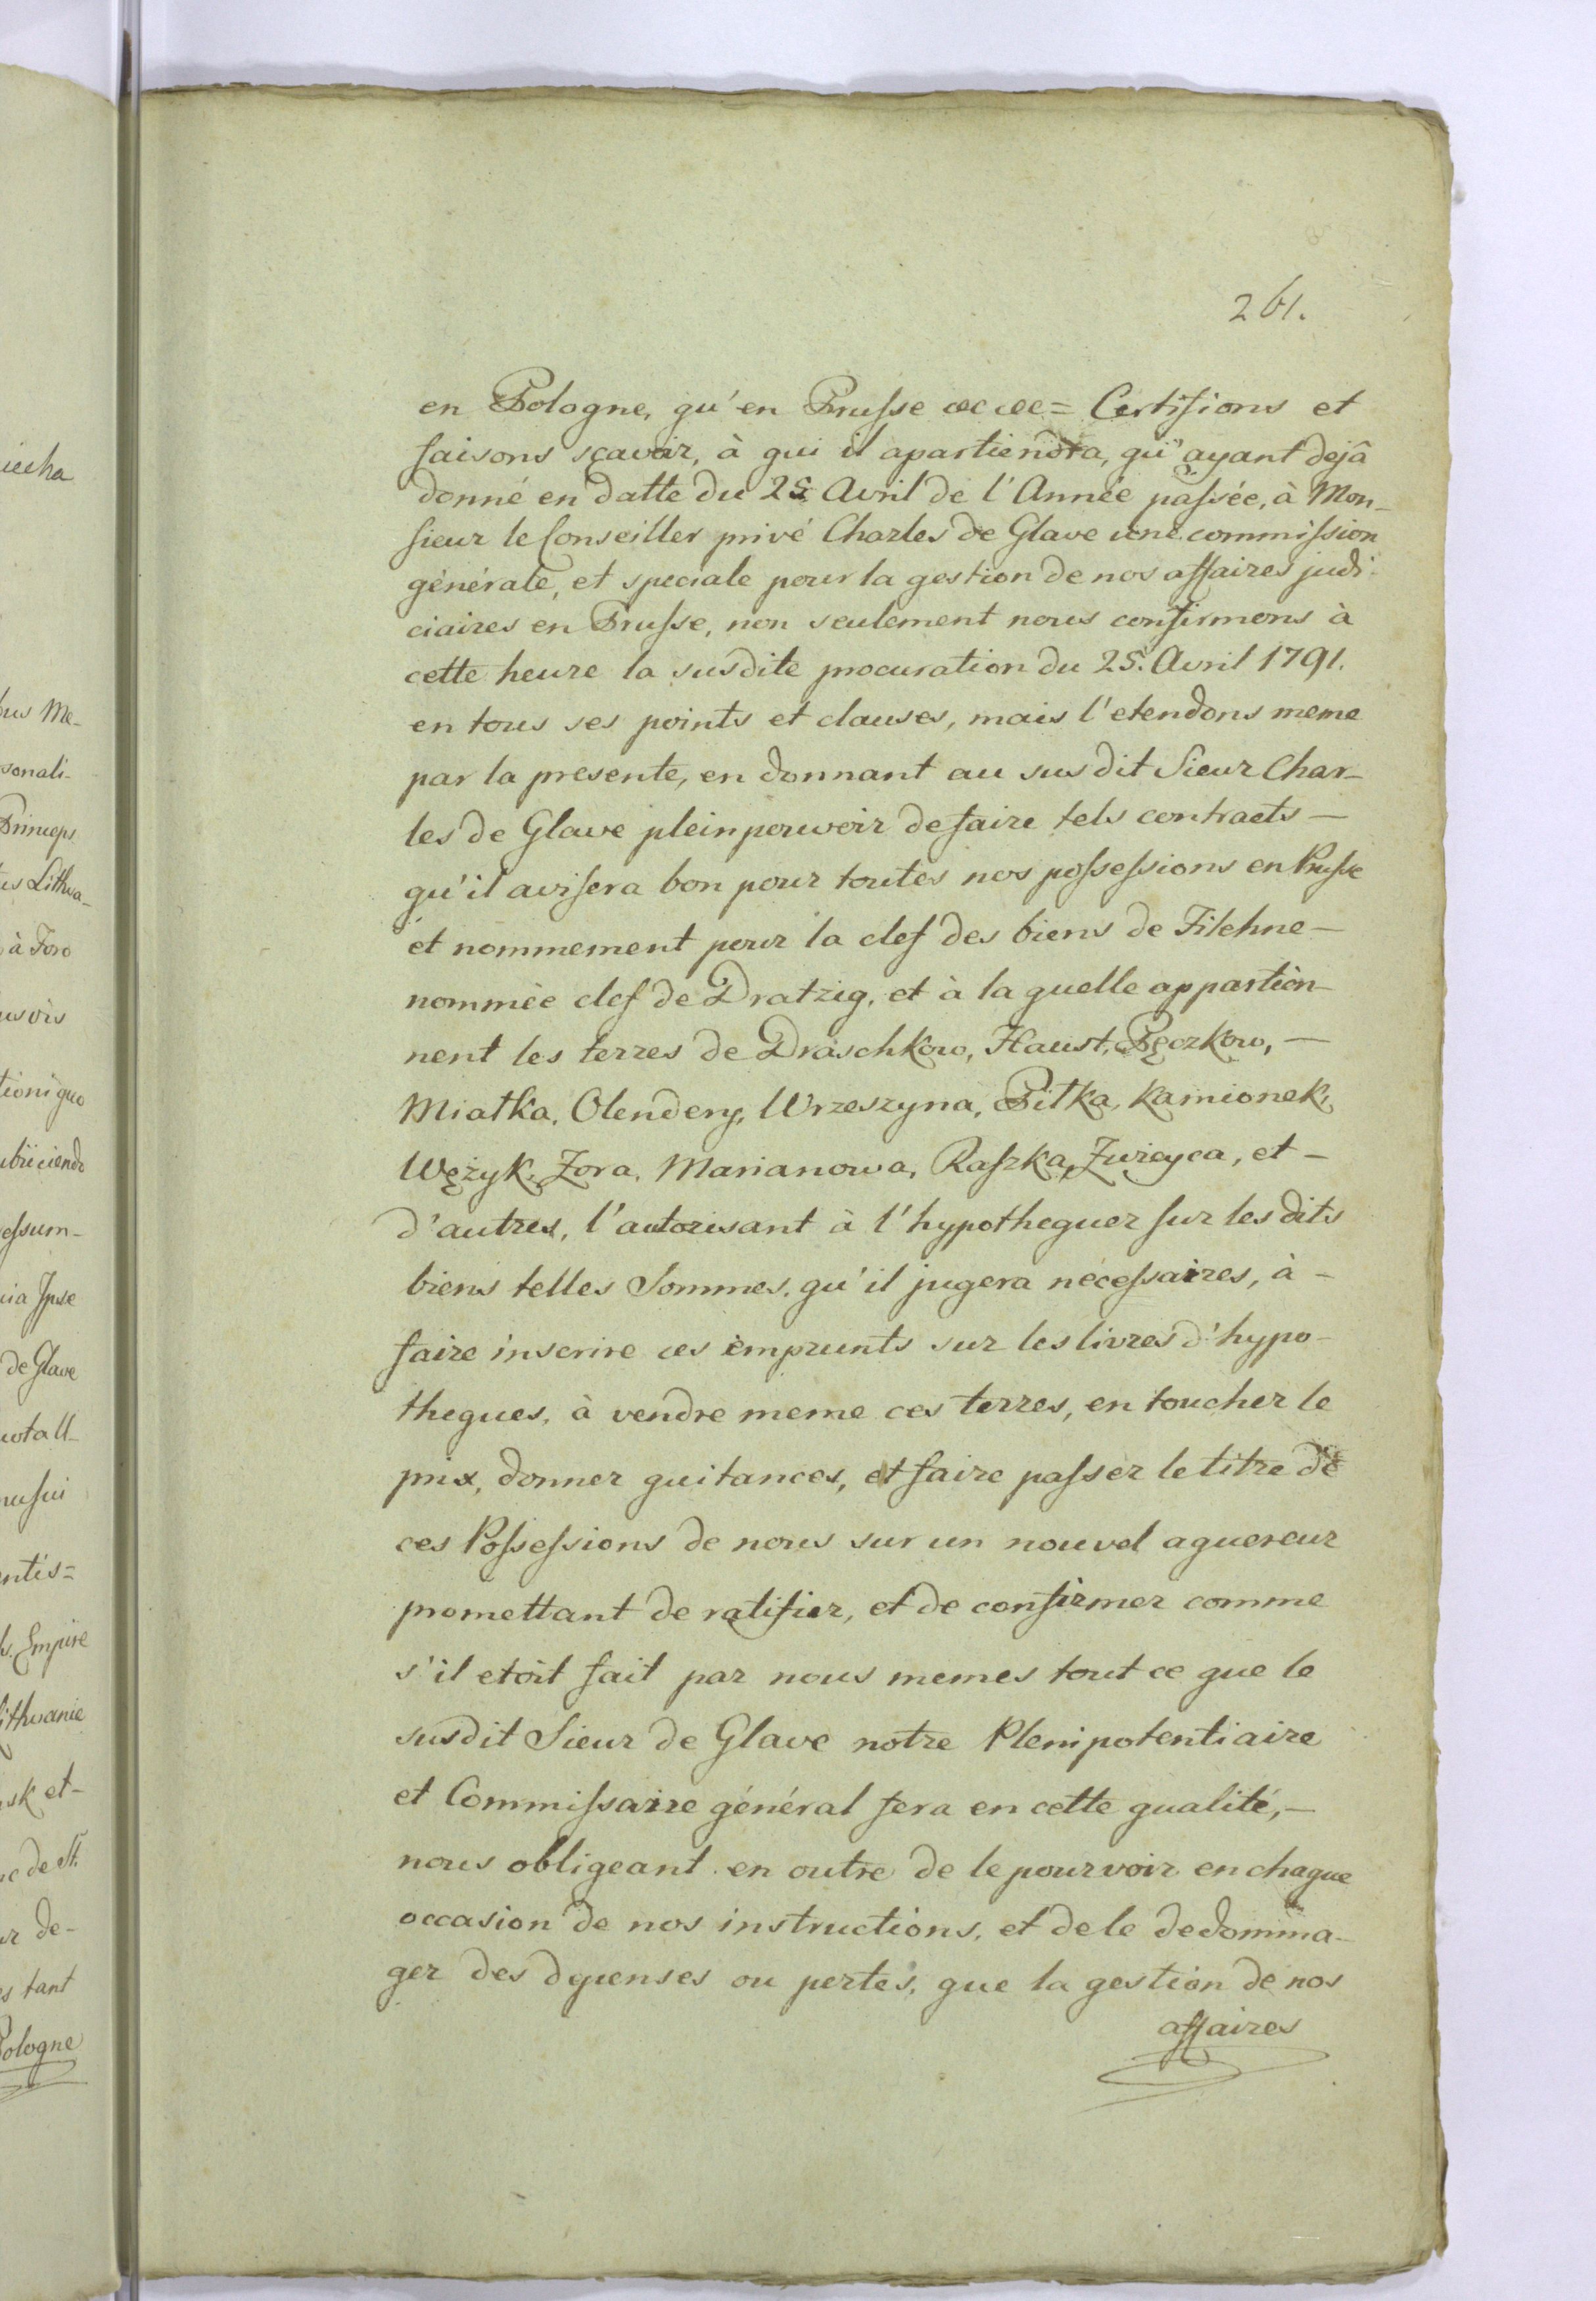 261.
en Pologne, qu'en Prusse &c &c = Certifions et
faisons sçavoir, à qui il apartiendra, qu'ayant dejâ
donné en datte du 25 Avril de l'Année passée, à Mon-
sieur le Conseiller privé Charles de Glave une commission
générale, et speciale pour la gestion de nos affaires judi-
ciaires en Prusse, non seulement nous confirmons à
cette heure la susdite procuration du 25. Avril 1791.
en tous ses points et clauses, mais l'etendons meme
par la presente, en donnant au susdit Sieur Char-
les de Glave plein pouvoir de faire tels contracts —
qu'il avisera bon pour toutes nos possessions en Prusse
et nommement pour la clef des biens de Filehne —
nommée clef de Dratzig, et à la quelle appartien-
nent les terres de Draschkow, Haust, Pęczkow, —
Miatka, Olendery, Wrzeszyna, Pitka, Kamionek,
Wężyk, Zora, Marianowa, Raszka, Zwieyca, et —
d'autres, l'autorisant à l'hypothequer sur les dits
biens telles Sommes, qu'il jugera nécessaires, à —
faire inscrire ces emprunts sur les livres d'hypo-
theques, à vendre meme ces terres, en toucher le
prix, donner quitances, et faire passer le titre de
ces Possessions de nous sur un nouvel aquereur
promettant de ratifier, et de confirmer comme
s'il etoit fait par nous memes tout ce que le
susdit Sieur de Glave notre Plenipotentiaire
et Commissaire général fera en cette qualité, —
nous obligeant en outre de le pourvoir en chaque
occasion de nos instructions, et de le dedomma-
ger des depenses ou pertes, que la gestion de nos
affaires
iecha
bus Me-
sonali-
Princeps
us Lithua-
à Foro
essum-
ia Ipse
de Glave
ntis=
Empire
ithuanie
sk et-
de St.
de-
tant
Pologne